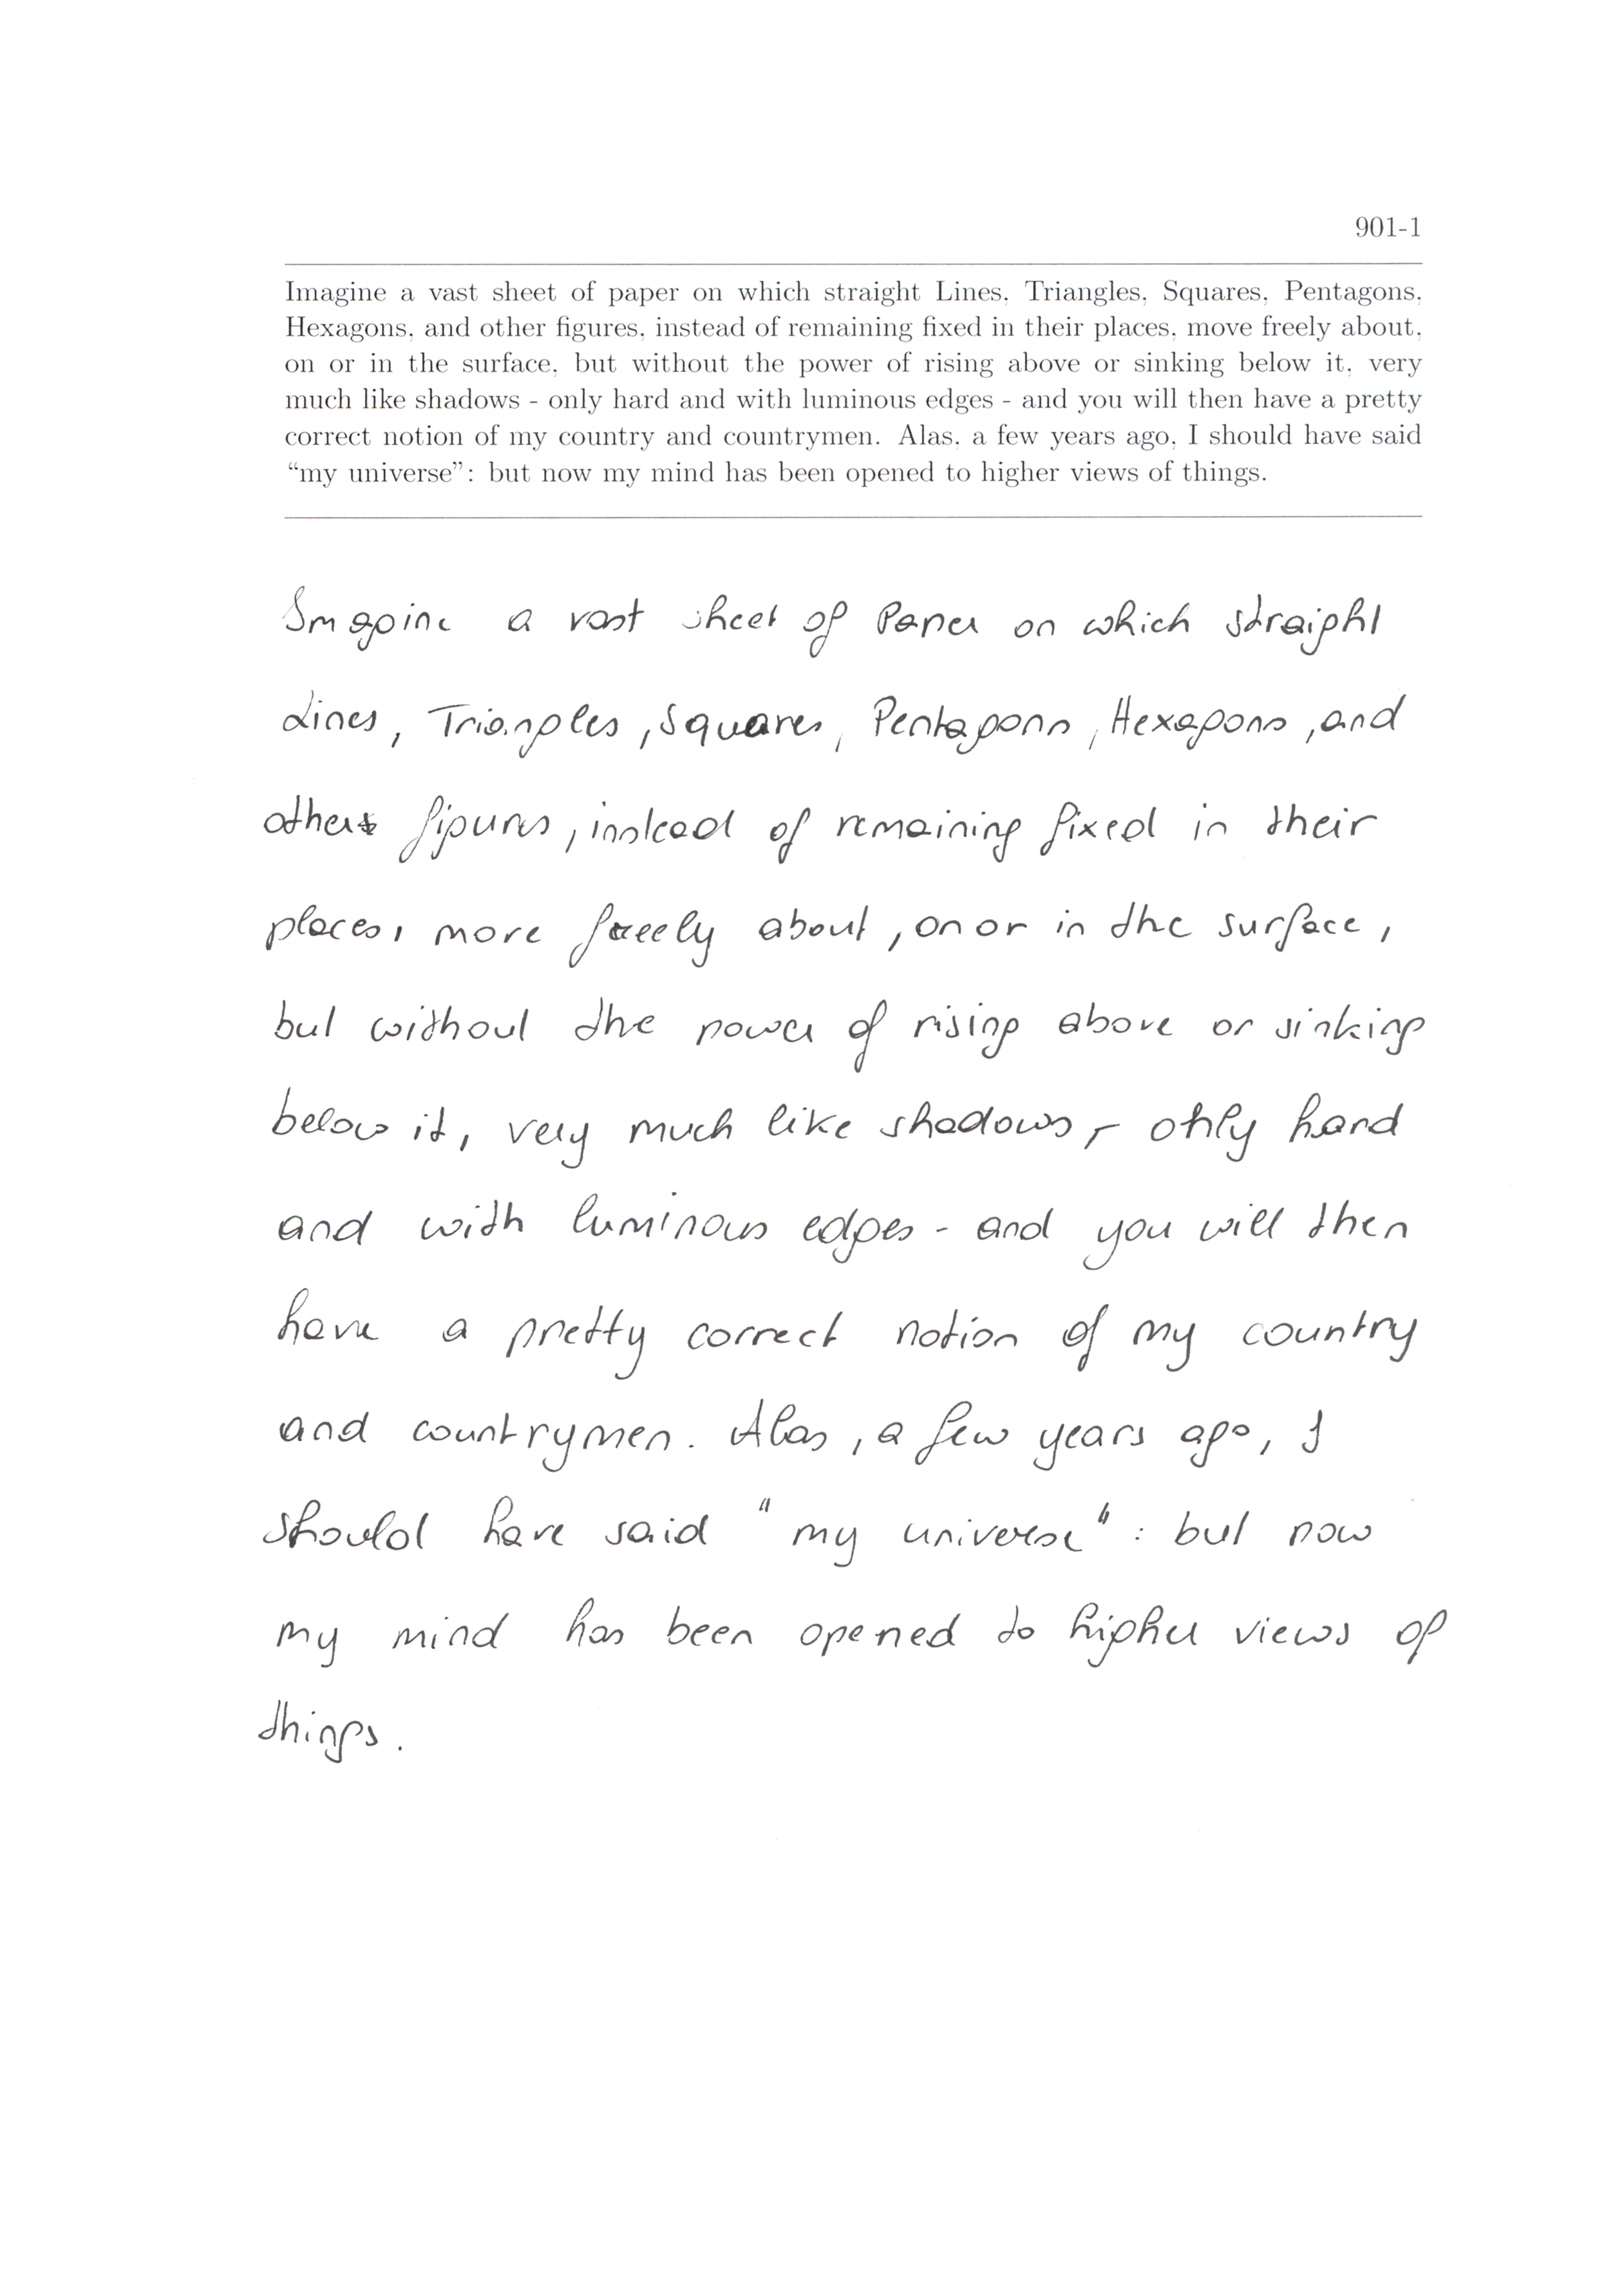 901-1
Imagine a vast sheet of paper on which straight Lines, Triangles, Squares, Pentagons,
Hexagons, and other figures, instead of remaining fixed in their places, move freely about,
on or in the surface, but without the power of rising above or sinking below it, very
much like shadows - only hard and with luminous edges - and you will then have a pretty
correct notion of my country and countrymen. Alas, a few years ago, I should have said
“my universe”: but now my mind has been opened to higher views of things.
Imagine a vast sheet of Paper on which straight
Lines, Triangles, Squares, Pentagons, Hexagons, and
other figures, instead of remaining fixed in their
places, move freely about, on or in the surface,
but without the power of rising above or sinking
below it, very much like shadows, - only hard
and with luminous edges - and you will then
have a pretty correct notion of my country
and countrymen. Alas, a few years ago, I
should have said "my universe": but now
my mind has been opened to higher views of
things.